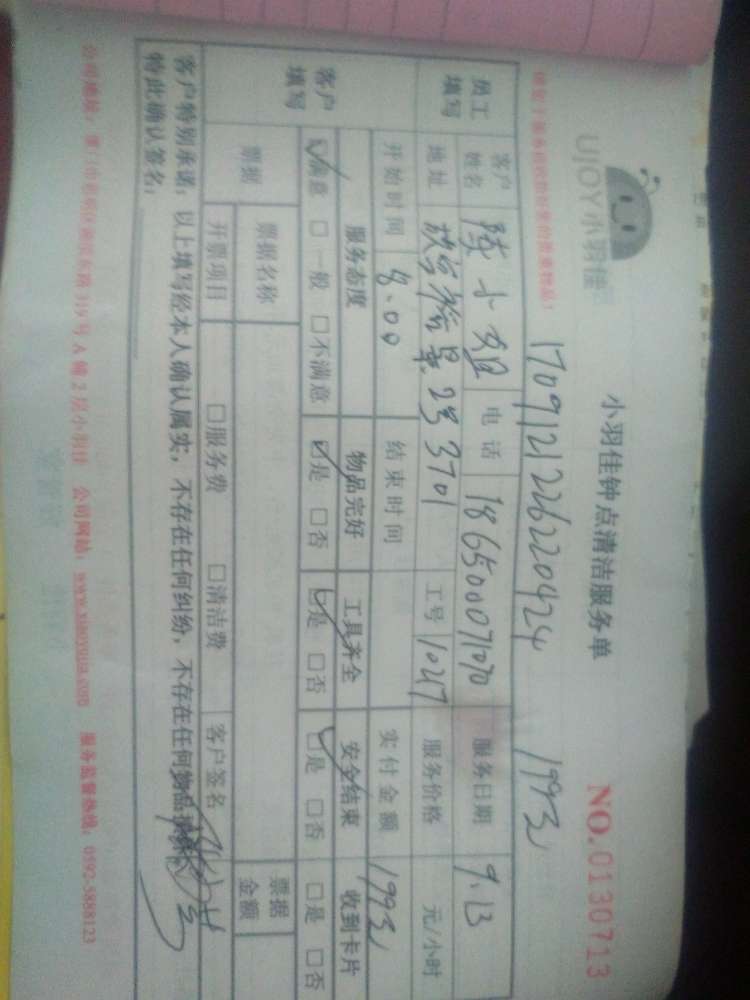 UJOY小羽佳
小羽佳钟点清洁服务单
NO.0130713
1709121226220424 199元
员工填写
客户姓名 陈小姐 电话 18650007070 服务日期 9.13
地址 2号3701 工号 1047 服务价格 元/小时
开始时间 8.00 结束时间 实付金额 199元
客户填写
服务态度 物品完好 工具齐全 安全结束 收到卡片
☑满意 □一般 □不满意 ☑是 □否 ☑是 □否 ☑是 □否 □是 □否
票据 票据名称 票据金额
开票项目 □服务费 □清洁费 客户签名
客户特别承诺：以上填写经本人确认属实，不存在任何纠纷，不存在任何物品
特此确认签名：
公司网站：www.xiaoyujia.com 服务监督热线：0592-5888123